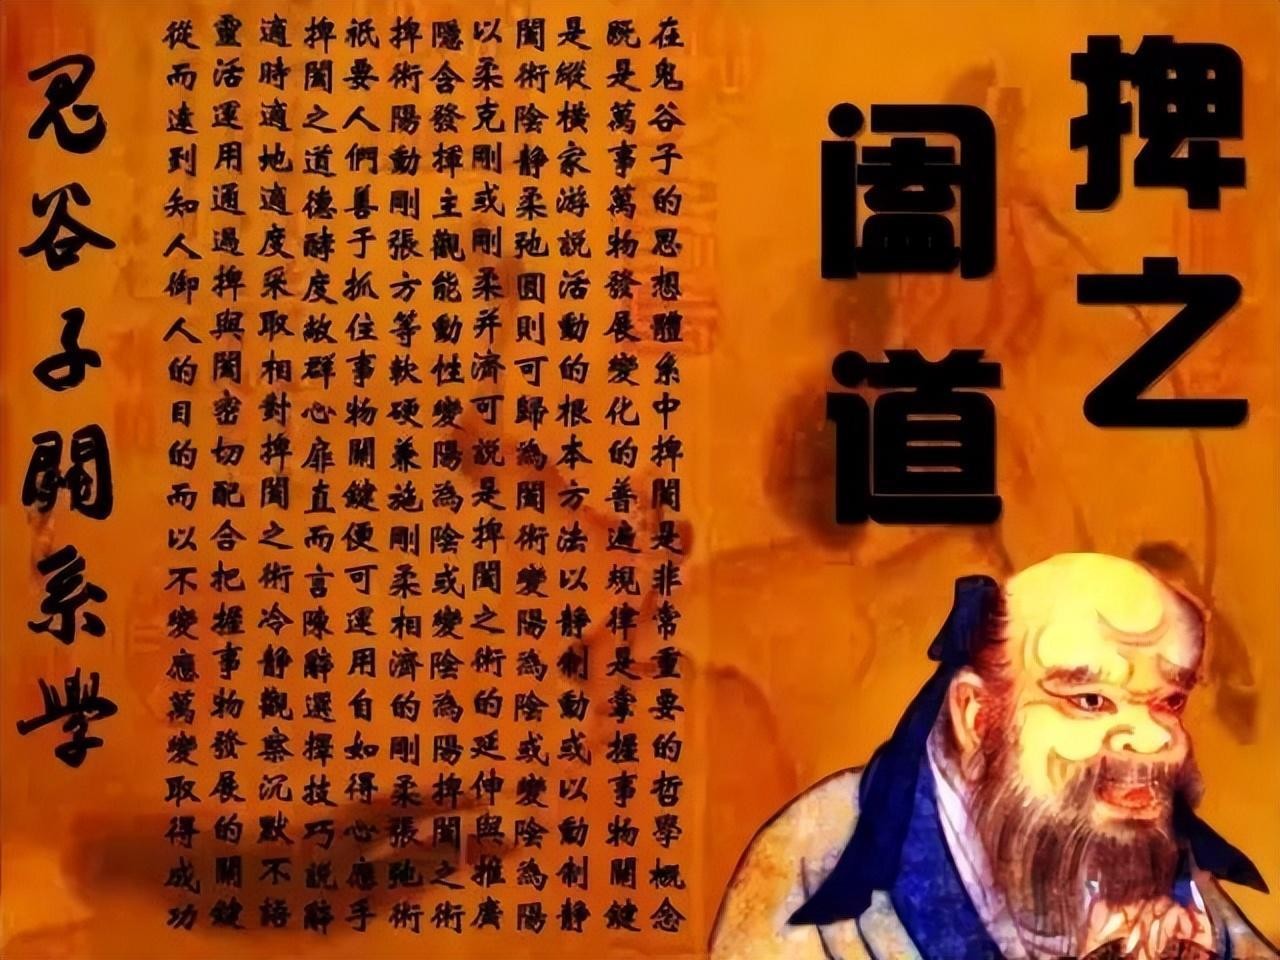 捭之
阖道
在鬼谷子的思想體系中捭闔是非常重要的哲學概念
既是萬事萬物發展變化的普遍規律是掌握事物關鍵
是縱橫家游說活動的根本方法以靜制動或以動制靜
闔術陰靜柔弛圓則可歸為闔術變陽為陰或變陰為陽
以柔克剛或剛柔并濟可說是捭闔之術的延伸與推廣
隱含發揮主觀能動性變陽為陰或變陰為陽捭闔之術
捭術陽動剛張方等軟硬兼施剛柔相濟的剛柔張弛術
祇要人們善于抓住事物關鍵便可運用自如得心應手
捭闔之道德酵度敞群心扉直而言陳辭選擇技巧說辭
適時適地適度采取相對捭闔之術冷靜觀察沉默不語
靈活運用通過捭與闔密切配合把握事物發展的關鍵
從而達到知人御人的目的而以不變應萬變取得成功
鬼谷子關系學